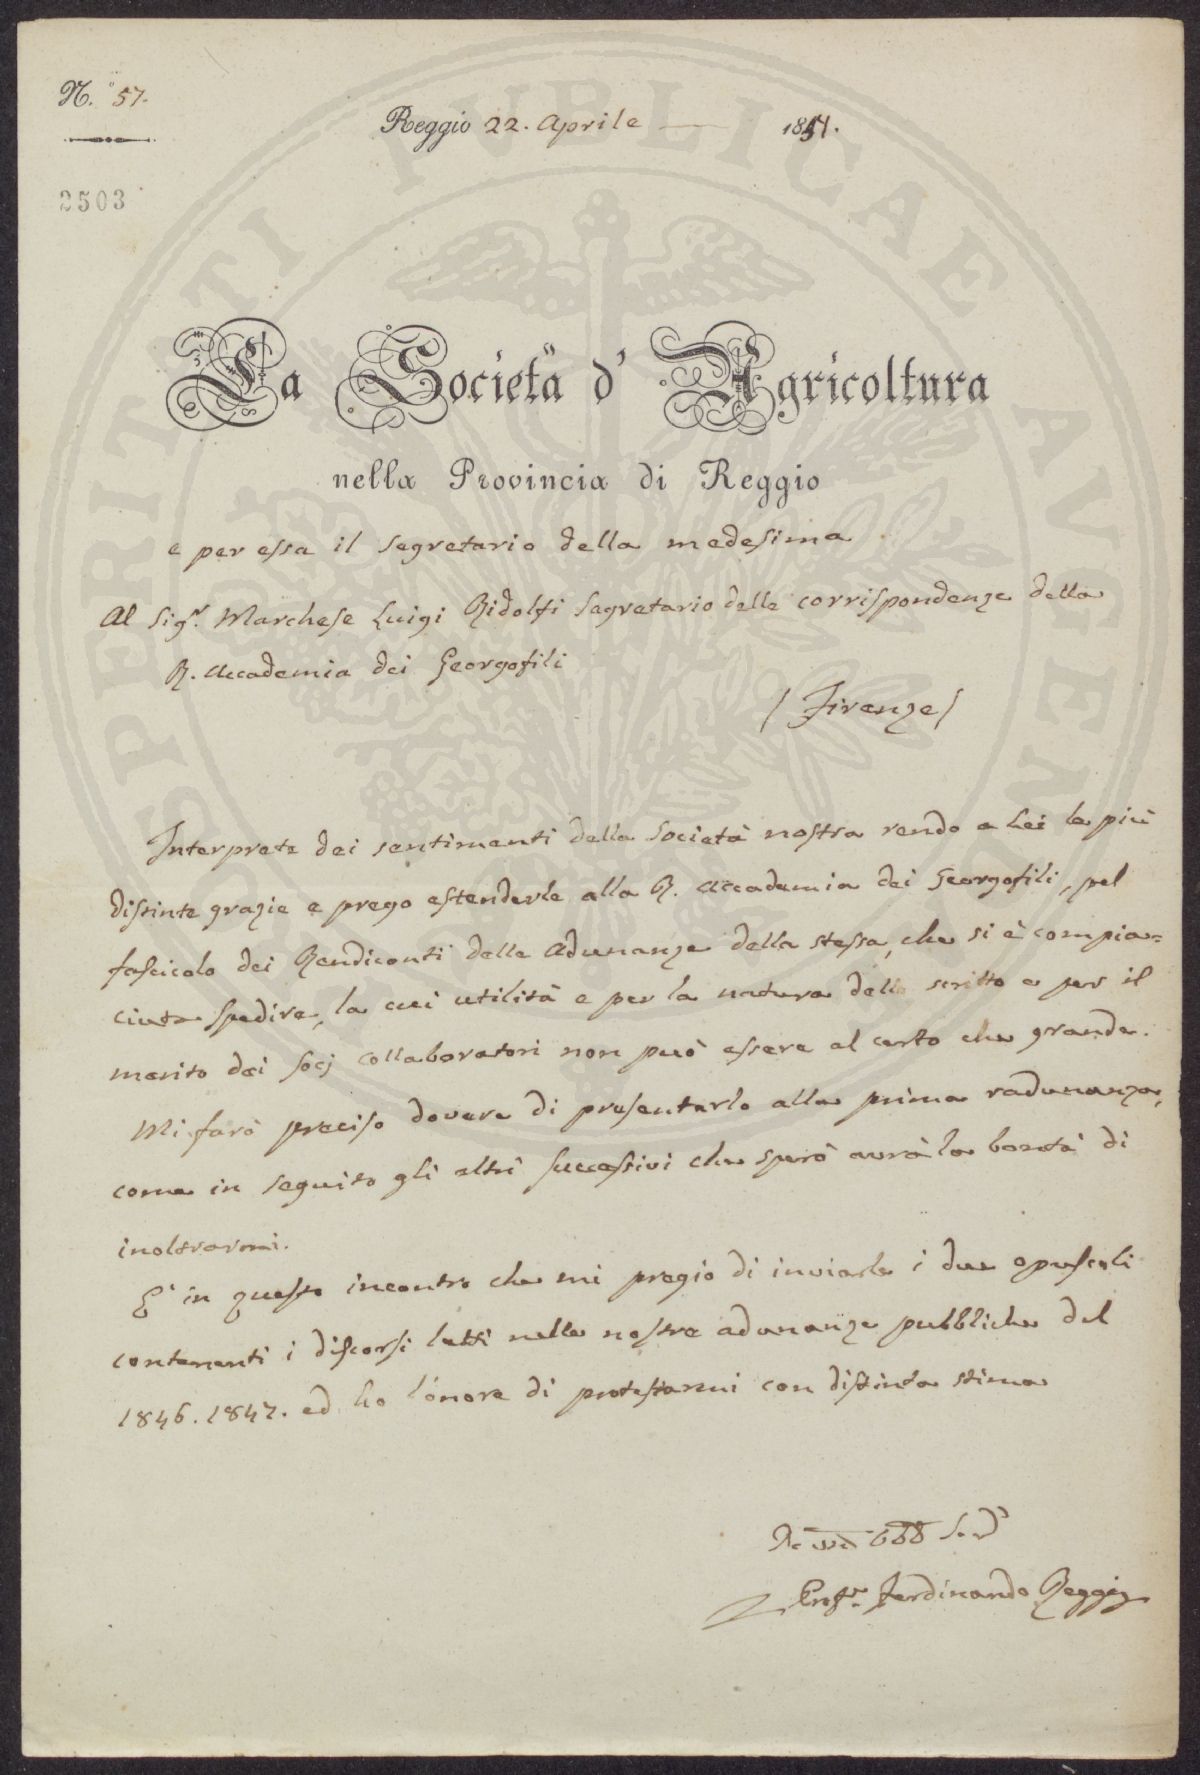 N.° 57.
Reggio 22. Aprile 1851.
2503
La Società d'Agricoltura
nella Provincia di Reggio
e per essa il Segretario della medesima
Al Sig.r Marchese Luigi Ridolfi Segretario delle corrispondenze della
R. Accademia dei Georgofili
/ Firenze /
Interprete dei sentimenti della Società nostra rendo a Lei le più
distinte grazie e prego estenderle alla R. Accademia dei Georgofili, pel
fascicolo dei Rendiconti delle Adunanze della stessa, che si è compia=
ciuta spedire, la cui utilità e per la natura dello scritto e per il
merito dei Socj collaboratori non può essere al certo che grande.
Mi farò preciso dovere di presentarlo alla prima radunanza,
come in seguito gli altri successivi che spero avrà la bontà di
inoltrarmi.
E' in questo incontro che mi pregio di inviarle i due opuscoli
contenenti i discorsi letti nelle nostre adunanze pubbliche del
1846. 1847. ed ho l'onore di protestarmi con distinta stima
Prof.r Ferdinando Reggi
PROSPERITATI PUBLICAE AUGENDAE